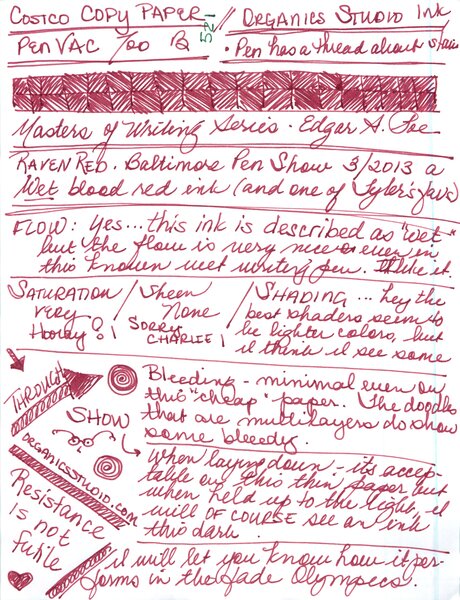 COSTCO COPY PAPER // ORGANICS STUDIO Ink
PEN VAC 700 B 521 • Pen has a thread about
Masters of Writing Series - Edgar A. Poe
RAVEN RED. Baltimore Pen Show 3/2013 a
Wet blood red ink (and one of Tyler's favs)
FLOW: Yes... this ink is described as "wet"
but the flow is very nice even in
this known wet writing pen. I like it.
SATURATION / Sheen / SHADING ... hey the
VERY None best shaders seem to
Hooray! SORRY CHARLIE! be lighter colors, but
I think I see some
THROUGH
Bleeding - minimal even on
this "cheap" paper. The doodles
that are multilayers do show
some bleedy.
SHOW
when laying down - its accep-
table on this thin paper but
when held up to the light, I
will OF COURSE see an ink
this dark.
ORGANICSSTUDIO.COM
Resistance
is not
futile
I will let you know how it per-
forms in the fade Olympics.